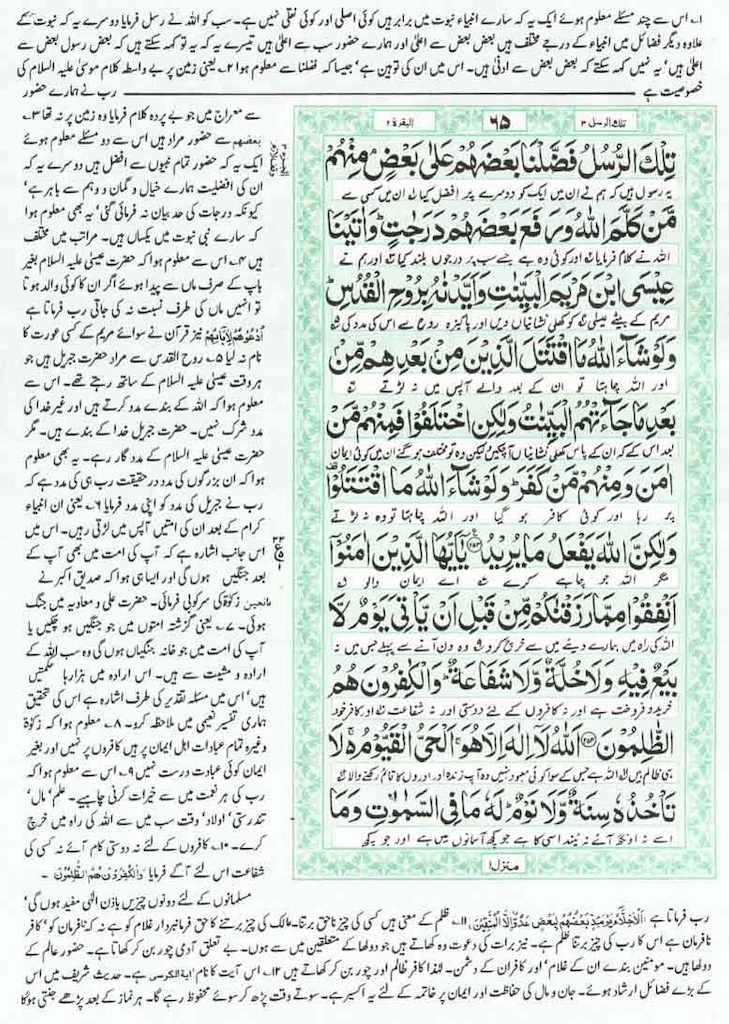 ۱۔ اس سے چند مسئلے معلوم ہوئے ایک یہ کہ سارے انبیاء نبوت میں برابر ہیں کوئی اصلی اور کوئی نقلی نہیں ہے۔ سب کو اللہ نے رسل فرمایا دوسرے یہ کہ نبوت کے
علاوہ دیگر فضائل میں انبیاء کے درجے مختلف ہیں بعض بعض سے اعلیٰ اور ہمارے حضور سب سے اعلیٰ ہیں تیسرے یہ کہ یہ تو کہہ سکتے ہیں کہ بعض رسول بعض سے
اعلیٰ ہیں' یہ نہیں کہہ سکتے کہ بعض بعض سے ادنیٰ ہیں۔ اس میں ان کی توہین ہے' جیسا کہ فضلنا سے معلوم ہوا ۲۔ یعنی زمین پر بے واسطہ کلام موسیٰ علیہ السلام کی
خصوصیت ہے رب نے ہمارے حضور
سے معراج میں جو بے پردہ کلام فرمایا وہ زمین پر نہ تھا ۳۔
بعضہم سے حضور مراد ہیں اس سے دو مسئلے معلوم ہوئے
ایک یہ کہ حضور تمام نبیوں سے افضل ہیں دوسرے یہ کہ
ان کی افضلیت ہمارے خیال و گمان و وہم سے باہر ہے'
کیونکہ درجات کی حد بیان نہ فرمائی گئی' یہ بھی معلوم ہوا
کہ سارے نبی نبوت میں یکساں ہیں۔ مراتب میں مختلف
ہیں ۴۔ اس سے معلوم ہوا کہ حضرت عیسیٰ علیہ السلام بغیر
باپ کے صرف ماں سے پیدا ہوئے اگر ان کا کوئی والد ہوتا
تو انہیں ماں کی طرف نسبت نہ کی جاتی رب فرماتا ہے
اُدْعُوْهُمْ لِاٰبَآئِهِمْ نیز قرآن نے سوائے مریم کے کسی عورت کا
نام نہ لیا ۵۔ روح القدس سے مراد حضرت جبریل ہیں جو
ہر وقت عیسیٰ علیہ السلام کے ساتھ رہتے تھے۔ اس سے
معلوم ہوا کہ اللہ کے بندے مدد کرتے ہیں اور غیر خدا کی
مدد شرک نہیں۔ حضرت جبریل خدا کے بندے ہیں۔ مگر
حضرت عیسیٰ علیہ السلام کے مددگار رہے۔ یہ بھی معلوم
ہوا کہ ان بزرگوں کی مدد در حقیقت رب ہی کی مدد ہے کہ
رب نے جبریل کی مدد کو اپنی مدد فرمایا ۶۔ یعنی ان انبیاء
کرام کے بعد ان کی امتیں آپس میں لڑتی رہیں۔ اس میں
اس جانب اشارہ ہے کہ آپ کی امت میں بھی آپ کے
بعد جنگیں ہوں گی اور ایسا ہی ہوا کہ صدیق اکبر نے
مانعین زکوٰۃ کی سرکوبی فرمائی۔ حضرت علی و معاویہ میں جنگ
ہوئی۔ ۷۔ یعنی گزشتہ امتوں میں جو جنگیں ہو چکیں یا
آپ کی امت میں جو خانہ جنگیاں ہوں گی وہ سب اللہ کے
ارادہ و مشیت سے ہیں۔ اس ارادہ میں ہزارہا حکمتیں
ہیں' اس میں مسئلہ تقدیر کی طرف اشارہ ہے اس کی تحقیق
ہماری تفسیر نعیمی میں ملاحظہ کرو۔ ۸۔ معلوم ہوا کہ زکوٰۃ
وغیرہ تمام عبادات اہل ایمان پر ہیں کافروں پر نہیں اور بغیر
ایمان کوئی عبادت درست نہیں ۹۔ اس سے معلوم ہوا کہ
رب کی ہر نعمت میں سے خیرات کرنی چاہیے۔ علم' مال'
تندرستی' اولاد' وقت سب میں سے اللہ کی راہ میں خرچ
کرے۔ ۱۰۔ کافروں کے لئے نہ دوستی کام آئے نہ کسی کی
شفاعت اس لئے آگے فرمایا وَالْكٰفِرُوْنَ هُمُ الظّٰلِمُوْنَ۔
مسلمانوں کے لئے دونوں چیزیں باذن الٰہی مفید ہوں گی'
تلك الرسل ۳
۶۵
البقرة ۲
تِلْكَ الرُّسُلُ فَضَّلْنَا بَعْضَهُمْ عَلٰى بَعْضٍ مِنْهُمْ
یہ رسول ہیں کہ ہم نے ان میں ایک کو دوسرے پر افضل کیا ان میں کسی سے
مَّنْ كَلَّمَ اللّٰهُ وَرَفَعَ بَعْضَهُمْ دَرَجٰتٍ وَاٰتَيْنَا
اللہ نے کلام فرمایا اور کوئی وہ ہے جسے سب پر درجوں بلند کیا اور ہم نے
عِيْسَى ابْنَ مَرْيَمَ الْبَيِّنٰتِ وَاَيَّدْنٰهُ بِرُوْحِ الْقُدُسِ
مریم کے بیٹے عیسیٰ کو کھلی نشانیاں دیں اور پاکیزہ روح سے اس کی مدد کی
وَلَوْ شَآءَ اللّٰهُ مَا اقْتَتَلَ الَّذِيْنَ مِنْ بَعْدِهِمْ مِّنْ
اور اللہ چاہتا تو ان کے بعد والے آپس میں نہ لڑتے
بَعْدِ مَا جَآءَتْهُمُ الْبَيِّنٰتُ وَلٰكِنِ اخْتَلَفُوْا فَمِنْهُمْ مَّنْ
بعد اس کے کہ ان کے پاس کھلی نشانیاں آ چکیں لیکن وہ تو مختلف ہو گئے ان میں کوئی ایمان
اٰمَنَ وَمِنْهُمْ مَّنْ كَفَرَ وَلَوْ شَآءَ اللّٰهُ مَا اقْتَتَلُوْا
پر رہا اور کوئی کافر ہو گیا اور اللہ چاہتا تو وہ نہ لڑتے
وَلٰكِنَّ اللّٰهَ يَفْعَلُ مَا يُرِيْدُ ۲۵۳ يٰٓاَيُّهَا الَّذِيْنَ اٰمَنُوْٓا
مگر اللہ جو چاہے کرے اے ایمان والو
اَنْفِقُوْا مِمَّا رَزَقْنٰكُمْ مِّنْ قَبْلِ اَنْ يَّاْتِيَ يَوْمٌ لَّا
اللہ کی راہ میں ہمارے دیئے میں سے خرچ کرو وہ دن آنے سے پہلے جس میں نہ
بَيْعٌ فِيْهِ وَلَا خُلَّةٌ وَّلَا شَفَاعَةٌ وَالْكٰفِرُوْنَ هُمُ
خرید و فروخت ہے اور نہ کافروں کے لئے دوستی اور نہ شفاعت اور کافر خود
الظّٰلِمُوْنَ ۲۵۴ اَللّٰهُ لَآ اِلٰهَ اِلَّا هُوَ اَلْحَيُّ الْقَيُّوْمُ لَا
ہی ظالم ہیں اللہ ہے جس کے سوا کوئی معبود نہیں وہ آپ زندہ اور اوروں کا قائم رکھنے والا
تَاْخُذُهٗ سِنَةٌ وَّلَا نَوْمٌ لَهٗ مَا فِي السَّمٰوٰتِ وَمَا
اسے نہ اونگھ آئے نہ نیند اسی کا ہے جو کچھ آسمانوں میں ہے اور جو کچھ
منزل ۱
رب فرماتا ہے اَلْاَخِلَّآءُ يَوْمَئِذٍ بَعْضُهُمْ لِبَعْضٍ عَدُوٌّ اِلَّا الْمُتَّقِيْنَ، ۱۱۔ ظلم کے معنی ہیں کسی کی چیز ناحق برتنا۔ مالک کی چیز برتنے کا حق فرمانبردار غلام کو ہے نہ کہ نافرمان کو' کافر
نافرمان ہے اس کا رب کی چیز برتنا ظلم ہے۔ نیز برات کی دعوت وہ کھاتے ہیں جو دولہا کے متعلقین میں سے ہوں۔ بے تعلق آدمی چور بن کر کھاتا ہے۔ حضور عالم کے
دولہا ہیں۔ مومنین بندے ان کے غلام' اور کافران کے دشمن۔ لہٰذا کافر ظالم اور چور بن کر کھاتے ہیں ۱۲۔ اس آیت کا نام آیۃ الکرسی ہے۔ حدیث شریف میں اس
کے بڑے فضائل ارشاد ہوئے۔ جان و مال کی حفاظت اور ایمان پر خاتمہ کے لئے یہ اکسیر ہے۔ سوتے وقت پڑھ کر سوئے محفوظ رہے گا۔ ہر نماز کے بعد پڑھے جنتی ہو گا